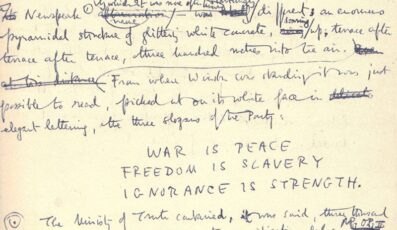 Newspeak was different: an enormous
pyramidal structure of glittering white concrete, soaring up, terrace after
terrace after terrace, three hundred metres into the air.
From where Winston was standing it was just
possible to read, picked out on its white face in
elegant lettering, the three slogans of the Party:
WAR IS PEACE
FREEDOM IS SLAVERY
IGNORANCE IS STRENGTH.
The Ministry of Truth contained, it was said, three thousand